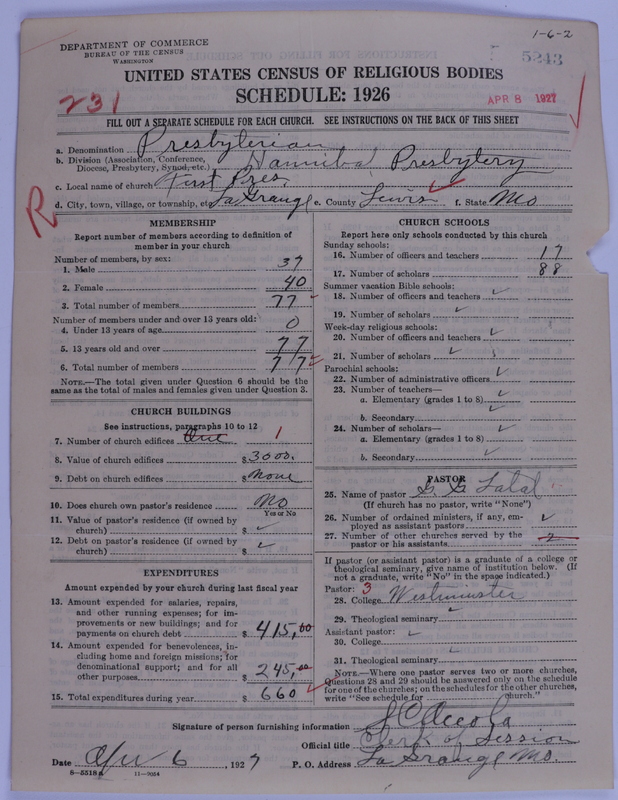 1-6-2
DEPARTMENT OF COMMERCE
BUREAU OF THE CENSUS
WASHINGTON
5243
UNITED STATES CENSUS OF RELIGIOUS BODIES
SCHEDULE: 1926
231
APR 8 1927
FILL OUT A SEPARATE SCHEDULE FOR EACH CHURCH. SEE INSTRUCTIONS ON THE BACK OF THIS SHEET
a. Denomination Presbyterian
b. Division (Association, Conference, Diocese, Presbytery, Synod, etc.) Hannibal Presbytery
c. Local name of church First Pres.
d. City, town, village, or township, etc. La Grange e. County Lewis f. State Mo
R
MEMBERSHIP
Report number of members according to definition of
member in your church
Number of members, by sex:
1. Male 37
2. Female 40
3. Total number of members 77
Number of members under and over 13 years old:
4. Under 13 years of age 0
5. 13 years old and over 77
6. Total number of members 77
NOTE.—The total given under Question 6 should be the
same as the total of males and females given under Question 3.
CHURCH BUILDINGS
See instructions, paragraphs 10 to 12
7. Number of church edifices One 1
8. Value of church edifices $ 3000.
9. Debt on church edifices $ None
10. Does church own pastor's residence No
Yes or No
11. Value of pastor's residence (if owned by
church) $ ✓
12. Debt on pastor's residence (if owned by
church) $ ✓
EXPENDITURES
Amount expended by your church during last fiscal year
13. Amount expended for salaries, repairs,
and other running expenses; for im-
provements or new buildings; and for
payments on church debt $ 415,00
14. Amount expended for benevolences, in-
cluding home and foreign missions; for
denominational support; and for all
other purposes $ 245,00
15. Total expenditures during year $ 660
CHURCH SCHOOLS
Report here only schools conducted by this church
Sunday schools:
16. Number of officers and teachers 17
17. Number of scholars 88
Summer vacation Bible schools:
18. Number of officers and teachers ✓
19. Number of scholars ✓
Week-day religious schools:
20. Number of officers and teachers ✓
21. Number of scholars ✓
Parochial schools:
22. Number of administrative officers ✓
23. Number of teachers—
a. Elementary (grades 1 to 8) ✓
b. Secondary ✓
24. Number of scholars—
a. Elementary (grades 1 to 8) ✓
b. Secondary ✓
PASTOR
25. Name of pastor
(If church has no pastor, write "None")
26. Number of ordained ministers, if any, em-
ployed as assistant pastors ✓
27. Number of other churches served by the
pastor or his assistants 2
If pastor (or assistant pastor) is a graduate of a college or
theological seminary, give name of institution below. (If
not a graduate, write "No" in the space indicated.)
Pastor: 3
28. College Westminster
29. Theological seminary ✓
Assistant pastor: ✓
30. College
31. Theological seminary ✓
NOTE.—Where one pastor serves two or more churches,
Questions 28 and 29 should be answered only on the schedule
for one of the churches; on the schedules for the other churches,
write "See schedule for church."
Signature of person furnishing information
Official title Clerk of Session
Date Apr 6, 1927 P. O. Address La Grange Mo.
8—5518a 11—9024